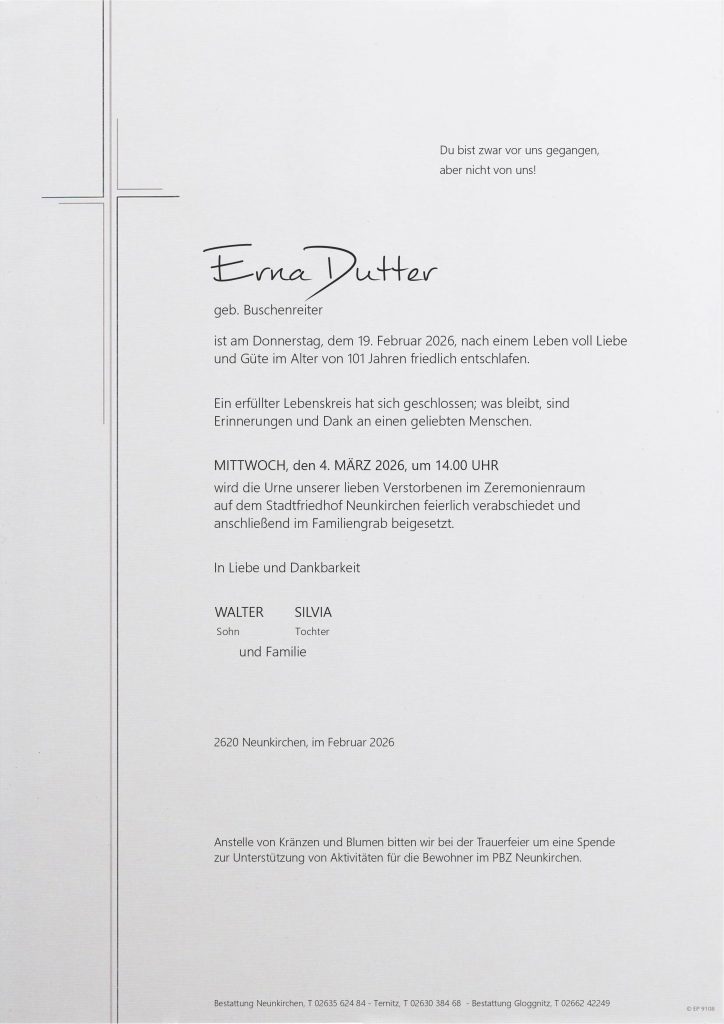 Du bist zwar vor uns gegangen,
aber nicht von uns!
Erna Dutter
geb. Buschenreiter
ist am Donnerstag, dem 19. Februar 2026, nach einem Leben voll Liebe
und Güte im Alter von 101 Jahren friedlich entschlafen.
Ein erfüllter Lebenskreis hat sich geschlossen; was bleibt, sind
Erinnerungen und Dank an einen geliebten Menschen.
MITTWOCH, den 4. MÄRZ 2026, um 14.00 UHR
wird die Urne unserer lieben Verstorbenen im Zeremonienraum
auf dem Stadtfriedhof Neunkirchen feierlich verabschiedet und
anschließend im Familiengrab beigesetzt.
In Liebe und Dankbarkeit
WALTER SILVIA
Sohn Tochter
und Familie
2620 Neunkirchen, im Februar 2026
Anstelle von Kränzen und Blumen bitten wir bei der Trauerfeier um eine Spende
zur Unterstützung von Aktivitäten für die Bewohner im PBZ Neunkirchen.
Bestattung Neunkirchen, T 02635 624 84 - Ternitz, T 02630 384 68 - Bestattung Gloggnitz, T 02662 42249
© EP 9108